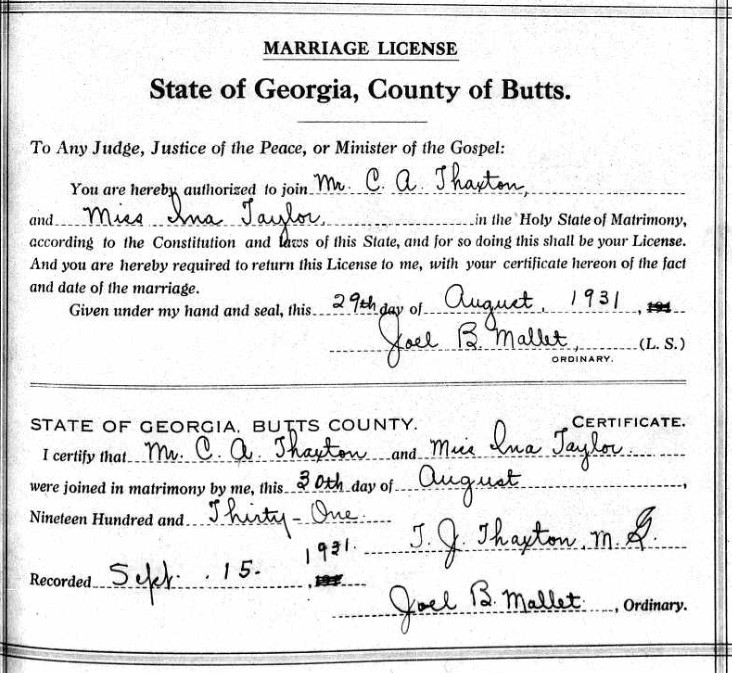 MARRIAGE LICENSE
State of Georgia, County of Butts.
To Any Judge, Justice of the Peace, or Minister of the Gospel:
You are hereby authorized to join Mr. C. A. Thaxton,
and Miss Ina Taylor, in the Holy State of Matrimony,
according to the Constitution and laws of this State, and for so doing this shall be your License.
And you are hereby required to return this License to me, with your certificate hereon of the fact
and date of the marriage.
Given under my hand and seal, this 29th day of August, 1931,
Joel B. Mallet, (L. S.)
ORDINARY.
STATE OF GEORGIA, BUTTS COUNTY. CERTIFICATE.
I certify that Mr. C. A. Thaxton and Miss Ina Taylor
were joined in matrimony by me, this 30th day of August,
Nineteen Hundred and Thirty-One.
T. J. Thaxton, M. G.
Recorded Sept. 15. 1931.
Joel B. Mallet, Ordinary.